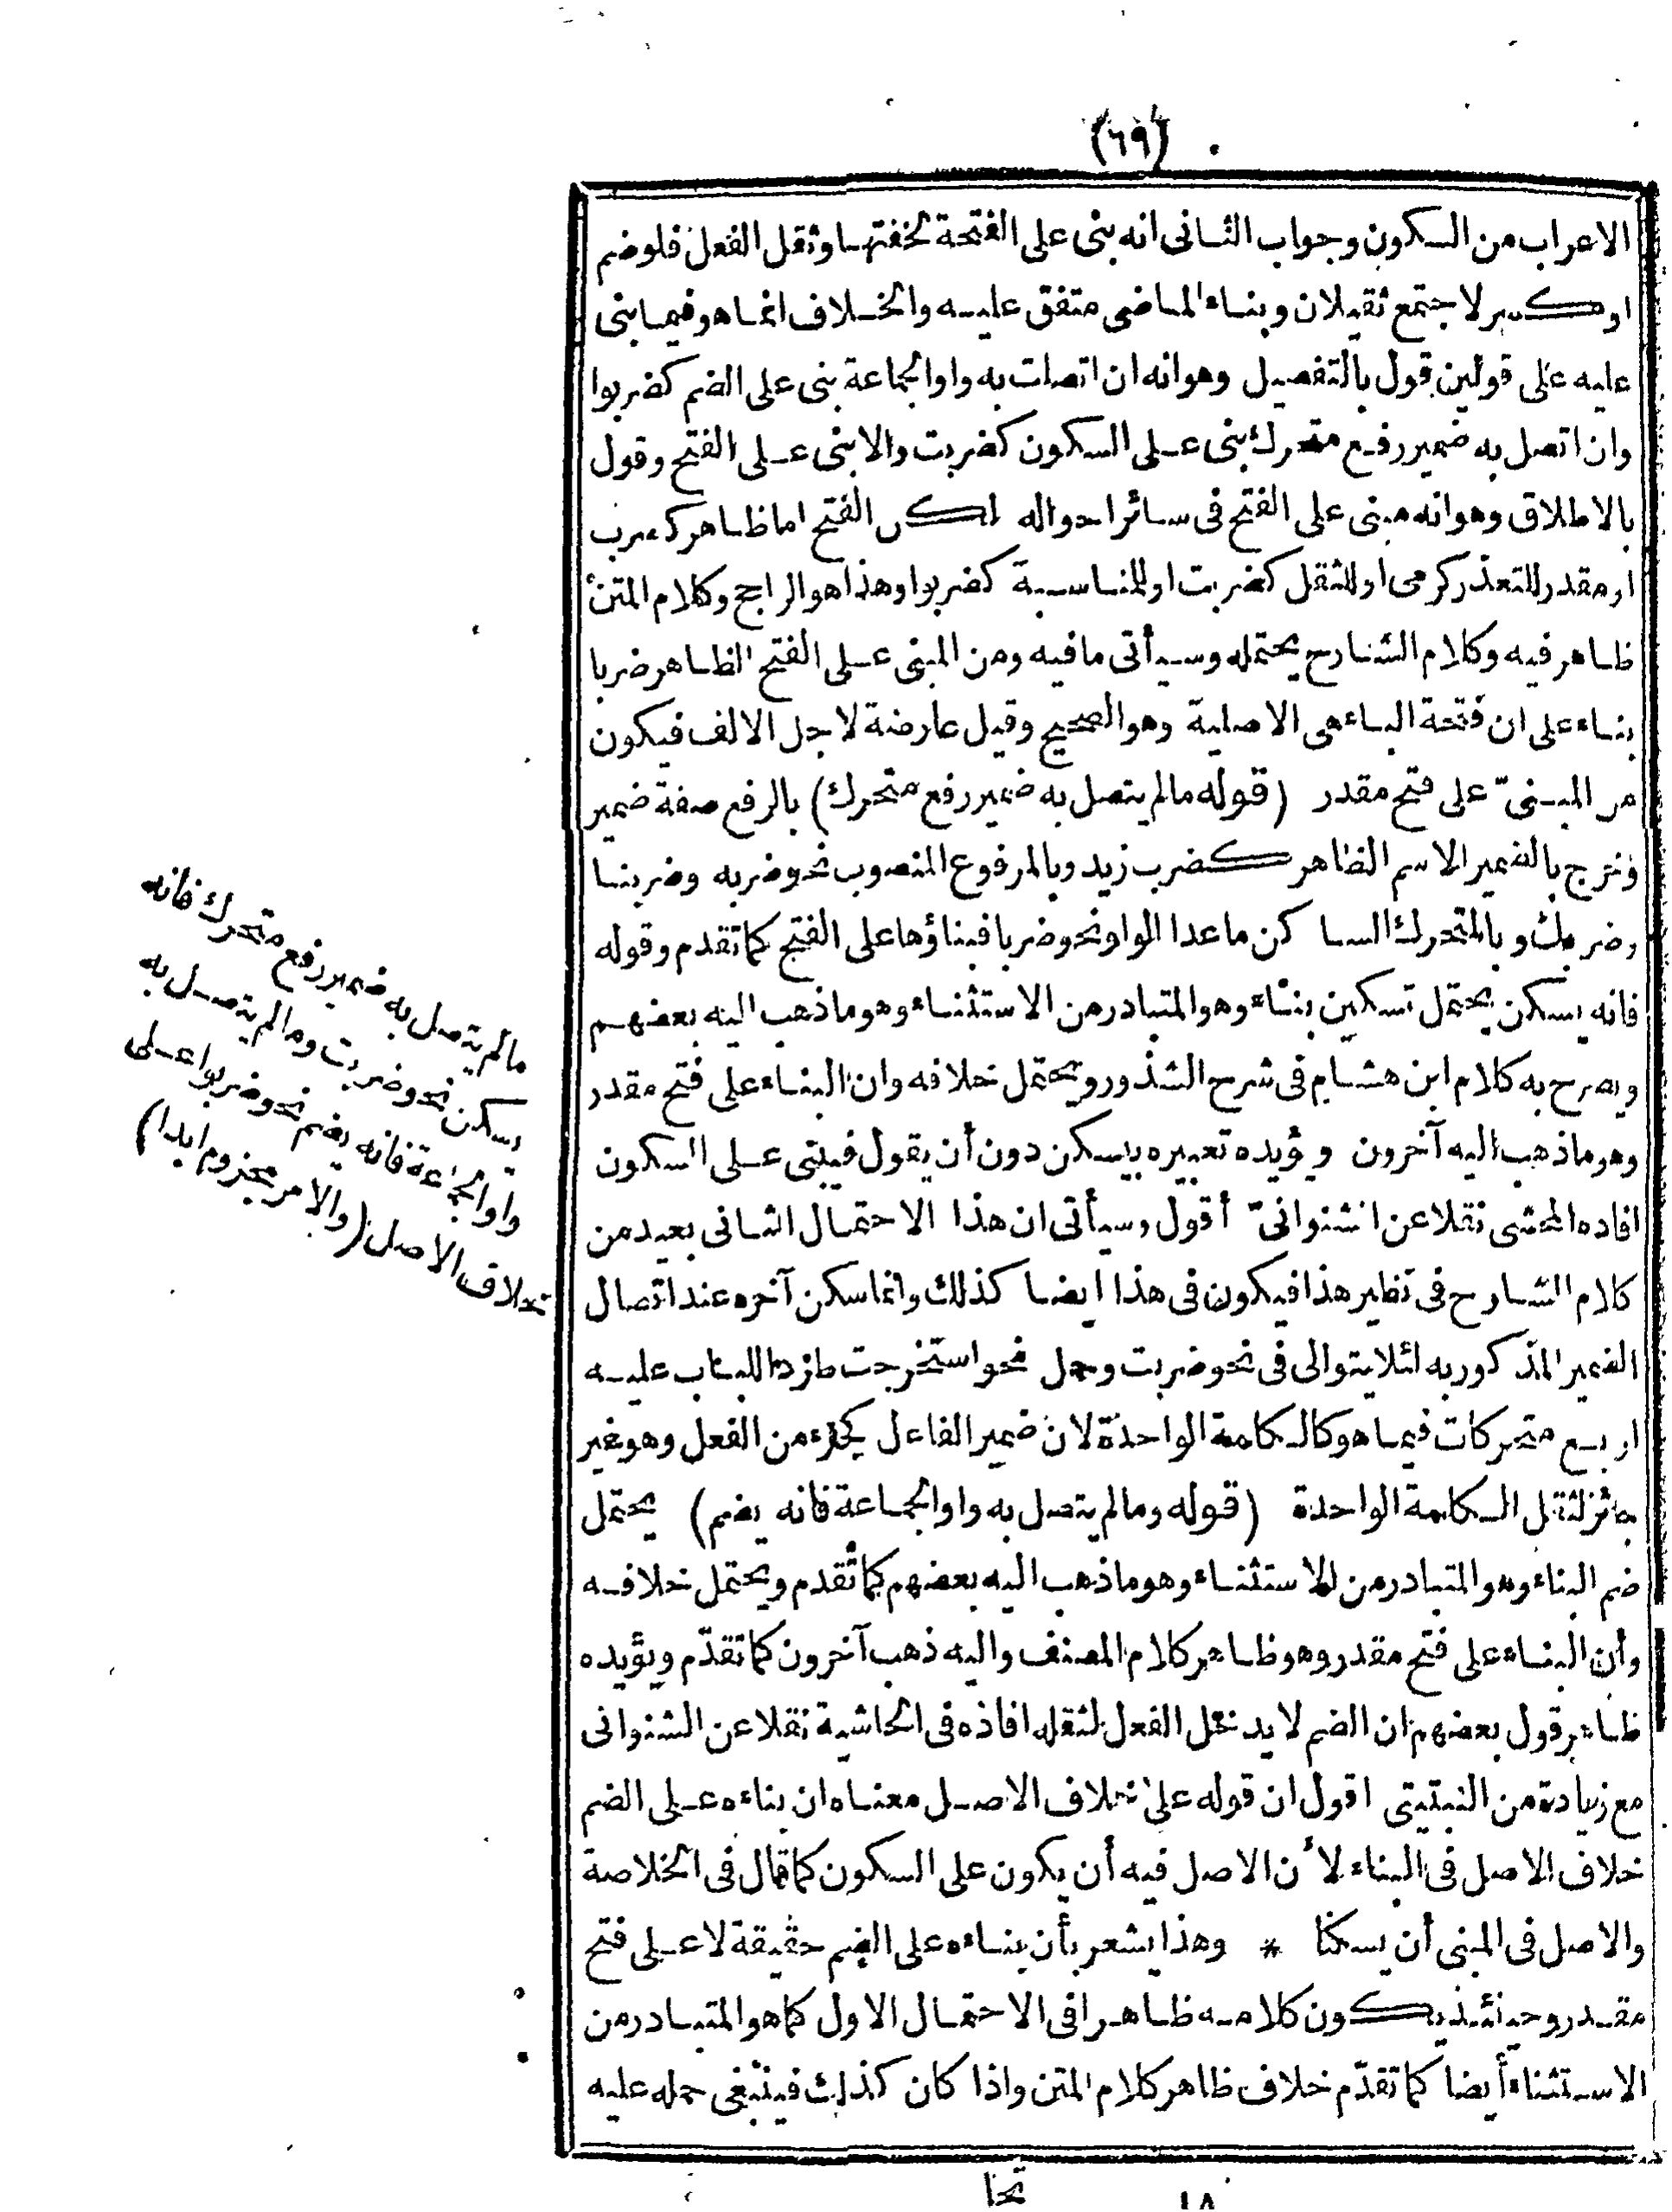 (٦٩)
الاعراب من السكون وجواب الثانى انه بنى على الفتحة لخفتها وثقل الفعل فلو ضم
او كسر لاجتمع ثقيلان وبناء الماضى متفق عليه والخلاف انما هو فيما بنى
عليه على قولين قول بالتفصيل وهو انه ان اتصلت به واو الجماعة بنى على الضم كضربوا
وان اتصل به ضمير رفع متحرك بنى على السكون كضربت والا بنى على الفتح وقول
بالاطلاق وهو انه مبنى على الفتح فى سائر احواله لكن الفتح اما ظاهر كضرب
او مقدر للتعذر كرمى او للثقل كضربت او للمناسبة كضربوا وهذا هو الراجح وكلام المتن
ظاهر فيه وكلام الشارح يحتمله وسيأتى ما فيه ومن المبنى على الفتح الظاهر ضربا
بناء على ان فتحة الباء هى الاصلية وهو الصحيح وقيل عارضة لاجل الالف فيكون
من المبنىّ على فتح مقدر (قوله ما لم يتصل به ضمير رفع متحرك) بالرفع صفة ضمير
فخرج بالضمير الاسم الظاهر كضرب زيد وبالمرفوع المنصوب نحو ضربه وضربنا
وضربك وبالمتحرك الساكن ما عدا الواو نحو ضربا فبناؤها على الفتح كما تقدم وقوله
فانه يسكن يحتمل تسكين بناء وهو المتبادر من الاستثناء وهو ما ذهب اليه بعضهم
ويصرح به كلام ابن هشام فى شرح الشذور ويحتمل خلافه وان البناء على فتح مقدر
وهو ما ذهب اليه آخرون ويؤيده تعبيره بيسكن دون أن يقول فيبنى على السكون
افاده المحشى نقلا عن الشنوانىّ أقول وسيأتى ان هذا الاحتمال الثانى بعيد من
كلام الشارح فى نظير هذا فيكون فى هذا ايضا كذلك وانما سكن آخره عند اتصال
الضمير المذكور به لئلا يتوالى فى نحو ضربت وحمل نحو استخرجت طردا للباب عليه
اربع متحركات فيما هو كالكلمة الواحدة لان ضمير الفاعل كجزء من الفعل وهو غير
جائز لثقل الكلمة الواحدة (قوله وما لم يتصل به واو الجماعة فانه يضم) يحتمل
ضم البناء وهو المتبادر من الاستثناء وهو ما ذهب اليه بعضهم كما تقدم ويحتمل خلافه
وأن البناء على فتح مقدر وهو ظاهر كلام المصنف واليه ذهب آخرون كما تقدّم ويؤيده
ظاهر قول بعضهم ان الضم لا يدخل الفعل لثقله افاده فى الحاشية نقلا عن الشنوانى
مع زيادة من النبتيتى اقول ان قوله على خلاف الاصل معناه ان بناءه على الضم
خلاف الاصل فى البناء لأن الاصل فيه أن يكون على السكون كما قال فى الخلاصة
والاصل فى المبنى أن يسكنا * وهذا يشعر بأن بناءه على الضم حقيقة لا على فتح
مقدر وحينئذ يكون كلامه ظاهرا فى الاحتمال الاول كما هو المتبادر من
الاستثناء أيضا كما تقدّم خلاف ظاهر كلام المتن واذا كان كذلك فينبغى حمله عليه
ما لم يتصل به ضمير رفع متحرك فانه
يسكن نحو ضربت وما لم يتصل به
واو الجماعة فانه يضم نحو ضربوا على
خلاف الاصل (والامر مجزوم ابدا)
١٨